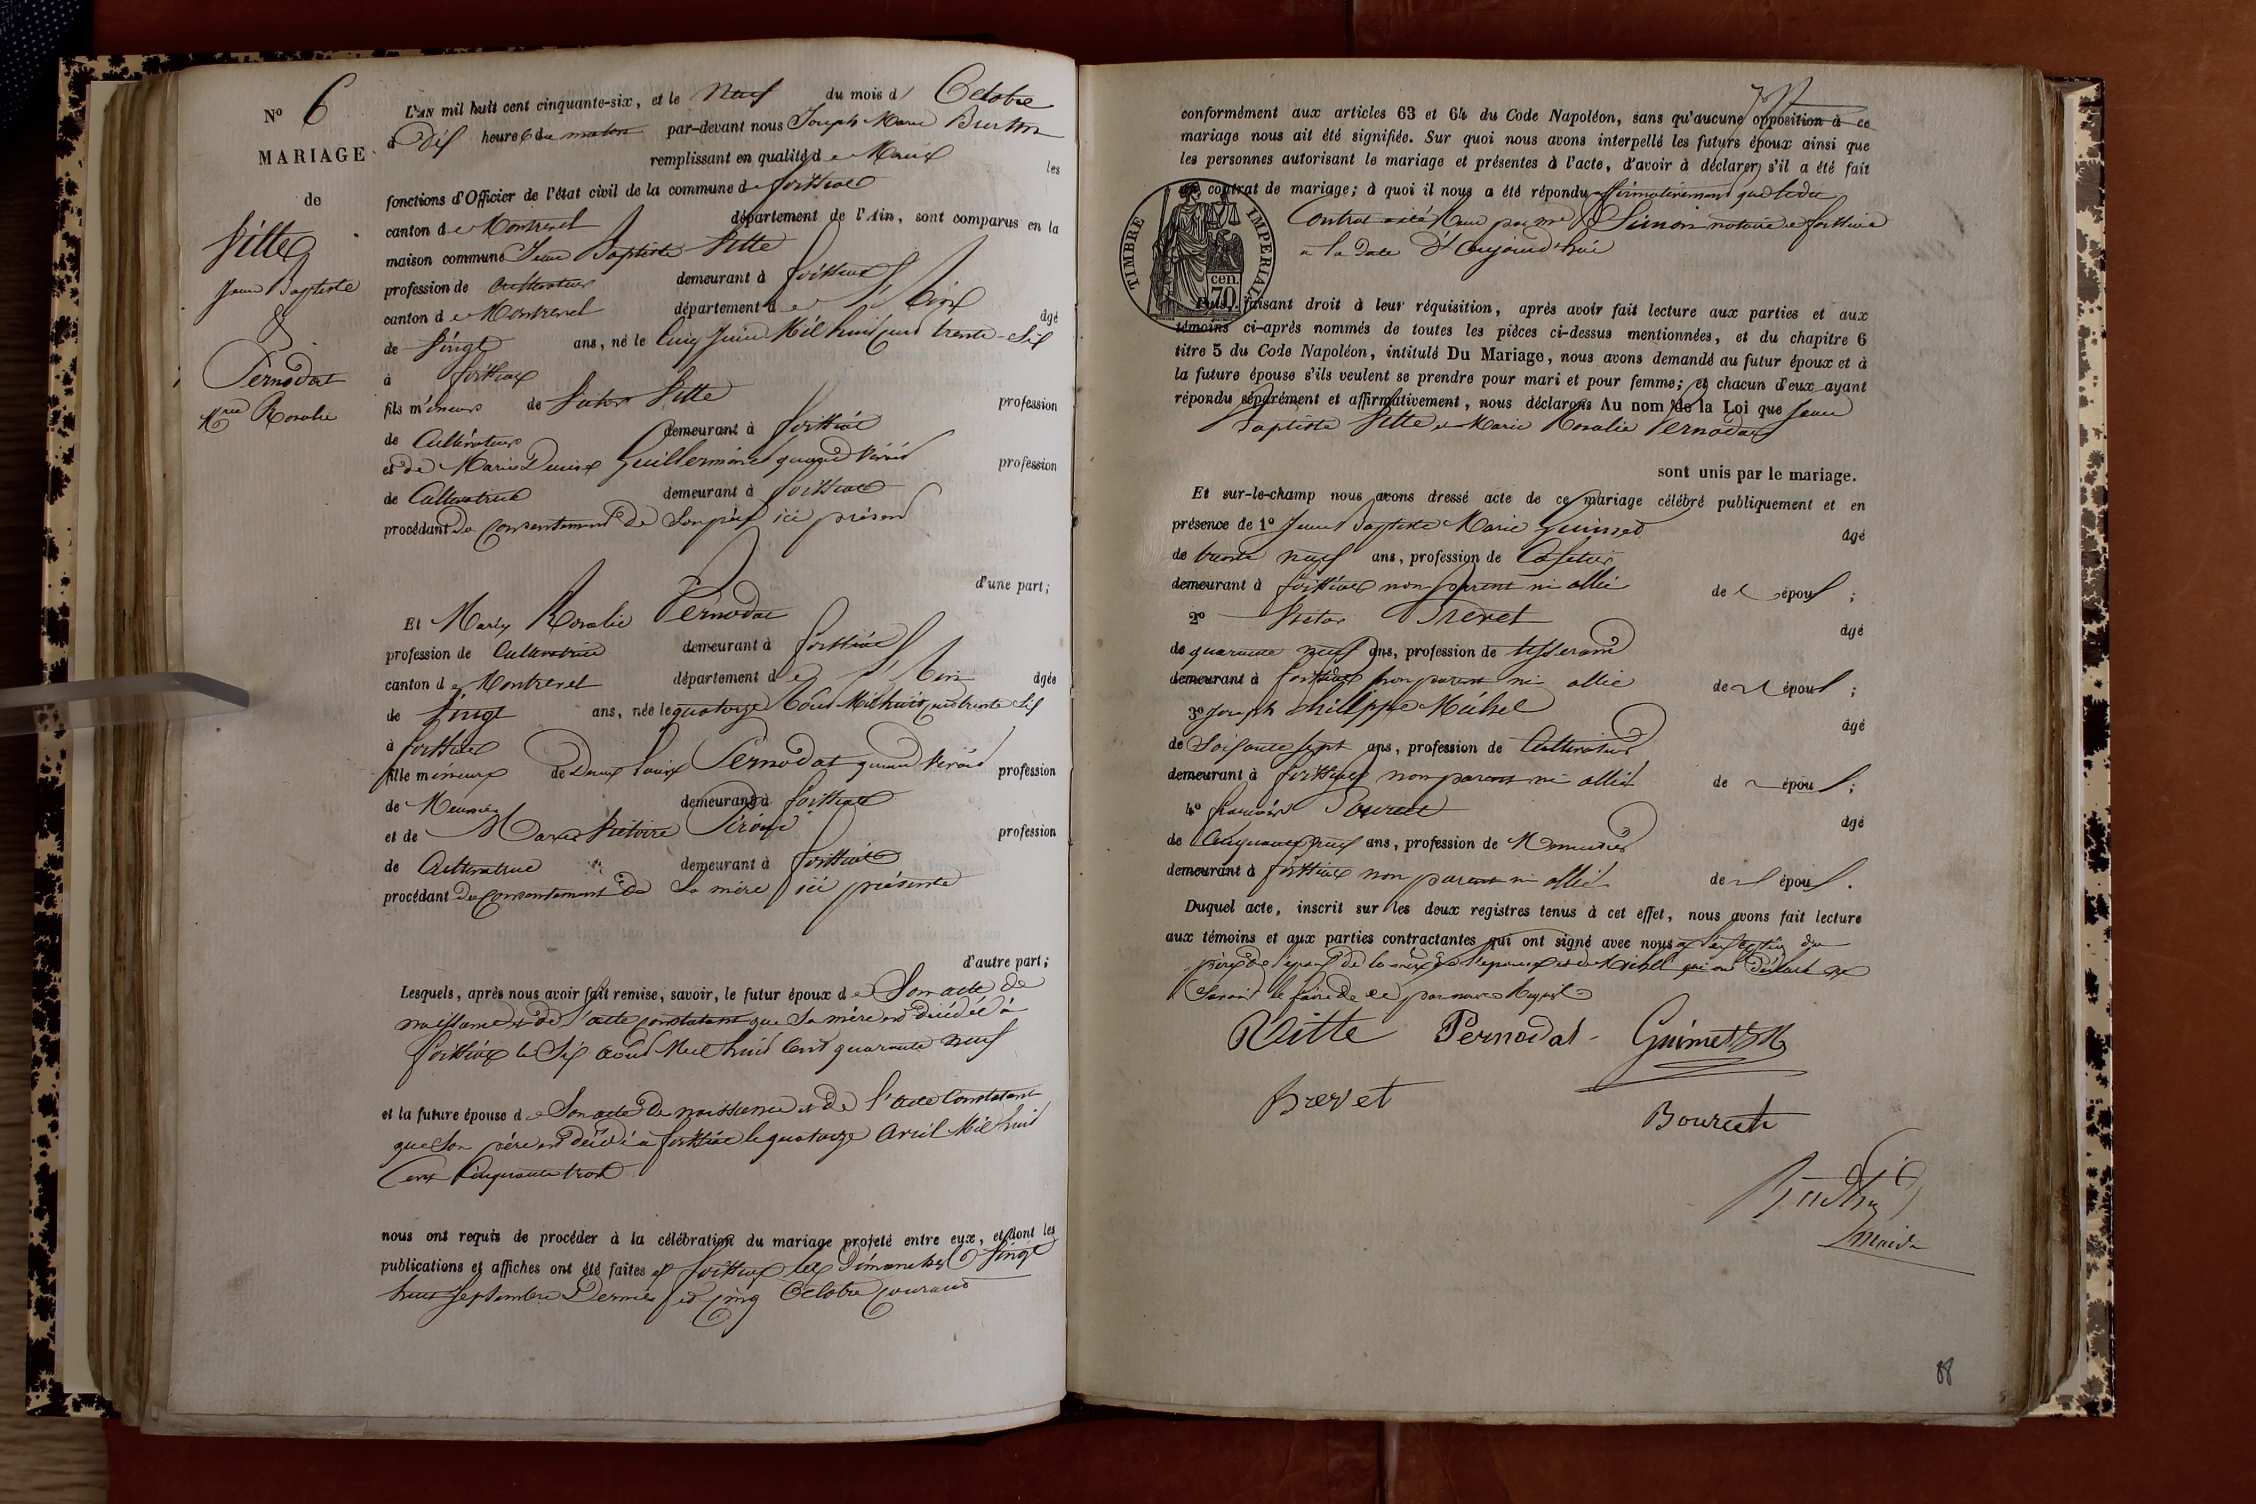 N° 6
MARIAGE
de
Vitte
Jean Baptiste
&
Pernodat
Mrie Rosalie
L'AN mil huit cent cinquante-six, et le Neuf du mois d' Octobre
à Dix heures du matin par-devant nous Joseph Marie
remplissant en qualité de Maire les
fonctions d'Officier de l'état civil de la commune de foissiat
canton de Montrevel département de l'Ain, sont comparus en la
maison commune Jean Baptiste Vitte
profession de Cultivateur demeurant à foissiat
canton de Montrevel département de l'Ain âgé
de Vingt ans, né le Cinq Juin Mil huit cent trente-Six
à foissiat
fils mineur de Victor Vitte profession
de Cultivateur demeurant à foissiat
et de Marie Denise Guillerminet quand vivait profession
de Cultivatrice demeurant à foissiat
procédant du consentement de Son père ici présent
d'une part;
Et Marie Rosalie Pernodat
profession de Cultivatrice demeurant à foissiat
canton de Montrevel département de l'Ain âgée
de Vingt ans, née le quatorze Aout Mil huit cent trente Six
à foissiat
fille mineure de Louis Pernodat quand vivait profession
de Meunier demeurant à foissiat
et de Marie Victoire profession
de Cultivatrice demeurant à foissiat
procédant du consentement de Sa mère ici présente
d'autre part;
Lesquels, après nous avoir fait remise, savoir, le futur époux de Son acte de
naissance et de l'acte constatant que Sa mère est décédée à
foissiat le Six août Mil huit Cent quarante neuf
et la future épouse de Son acte de naissance et de l'acte Constatant
que Son père est décédé à foissiat le quatorze Avril Mil huit
Cent Cinquante trois
nous ont requis de procéder à la célébration du mariage projeté entre eux, et dont les
publications et affiches ont été faites à foissiat les Dimanches Vingt
huit Septembre Dernier et cinq Octobre courant
conformément aux articles 63 et 64 du Code Napoléon, sans qu'aucune opposition à ce
mariage nous ait été signifiée. Sur quoi nous avons interpellé les futurs époux ainsi que
les personnes autorisant le mariage et présentes à l'acte, d'avoir à déclarer s'il a été fait
un contrat de mariage; à quoi il nous a été répondu affirmativement que ledit
Contrat a été Reçu par me Simon notaire à foissiat
à la date d'Aujourd'hui
TIMBRE IMPERIAL
cen.
70
Puis, faisant droit à leur réquisition, après avoir fait lecture aux parties et aux
témoins ci-après nommés de toutes les pièces ci-dessus mentionnées, et du chapitre 6
titre 5 du Code Napoléon, intitulé Du Mariage, nous avons demandé au futur époux et à
la future épouse s'ils veulent se prendre pour mari et pour femme; et chacun d'eux ayant
répondu séparément et affirmativement, nous déclarons Au nom de la Loi que Jean
Baptiste Vitte et Marie Rosalie Pernodat
sont unis par le mariage.
Et sur-le-champ nous avons dressé acte de ce mariage célébré publiquement et en
présence de 1° Jean Baptiste Marie Guimet âgé
de trente neuf ans, profession de Cafetier
demeurant à foissiat non parent ni allié de l'époux ;
2° Victor Brevet âgé
de quarante neuf ans, profession de tisserand
demeurant à foissiat non parent ni allié de l'époux ;
3° Joseph Philippe Michel âgé
de Soixante Sept ans, profession de Cultivateur
demeurant à foissiat non parent ni allié de l'époux ;
4° françois Bourcet âgé
de Cinquante neuf ans, profession de Menuisier
demeurant à foissiat non parent ni allié de l'époux .
Duquel acte, inscrit sur les deux registres tenus à cet effet, nous avons fait lecture
aux témoins et aux parties contractantes qui ont signé avec nous à l'exception du
père de l'époux de la mère de l'épouse et de Michel qui ont déclaré ne
Savoir le faire de ce par nous Requis
Vitte Pernodat Guimet
Brevet
maire
88